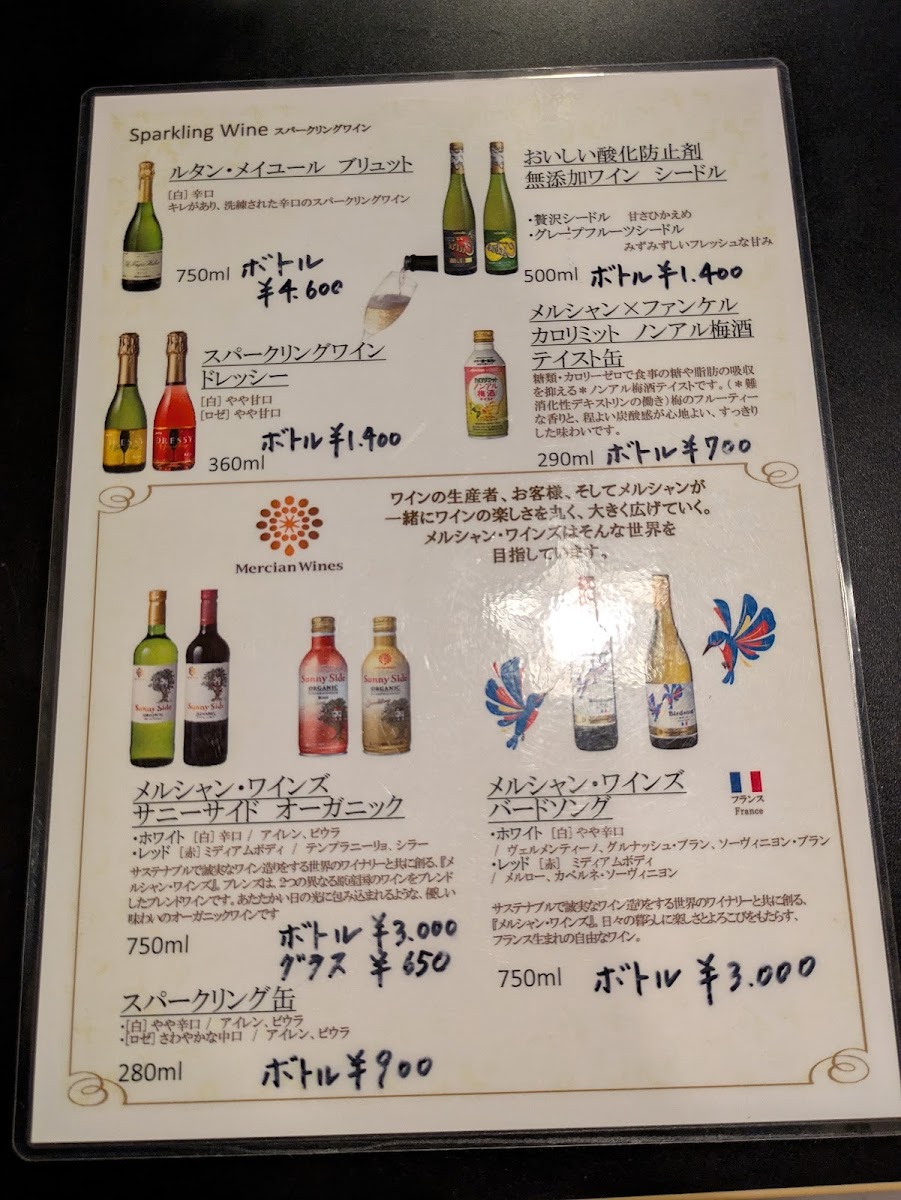 Sparkling Wine スパークリングワイン
ルタン・メイユール ブリュット
[白] 辛口
キレがあり、洗練された辛口のスパークリングワイン
750ml ボトル
¥4.600
おいしい酸化防止剤
無添加ワイン シードル
・贅沢シードル 甘さひかえめ
・グレープフルーツシードル
みずみずしいフレッシュな甘み
500ml ボトル ¥1.400
スパークリングワイン
ドレッシー
[白] やや甘口
[ロゼ] やや甘口
360ml ボトル ¥1.400
DRESSY
メルシャン×ファンケル
カロリミット ノンアル梅酒
テイスト缶
糖類・カロリーゼロで食事の糖や脂肪の吸収
を抑える＊ノンアル梅酒テイストです。(＊難
消化性デキストリンの働き) 梅のフルーティー
な香りと、程よい炭酸感が心地よい、すっきり
した味わいです。
290ml ボトル ¥700
カロリミット
ノンアル
梅酒
Mercian Wines
ワインの生産者、お客様、そしてメルシャンが
一緒にワインの楽しさを丸く、大きく広げていく。
メルシャン・ワインズはそんな世界を
目指しています。
Sunny Side
Sunny Side
Sunny Side
ORGANIC
Sunny Side
ORGANIC
Sparkling
Birdsong
メルシャン・ワインズ
サニーサイド オーガニック
・ホワイト [白] 辛口 / アイレン、ビウラ
・レッド [赤] ミディアムボディ / テンプラニーリョ、シラー
サステナブルで誠実なワイン造りをする世界のワイナリーと共に創る、『メ
ルシャン・ワインズ』。ブレンズは、2つの異なる原産国のワインをブレンド
したブレンドワインです。あたたかい日の光に包み込まれるような、優しい
味わいのオーガニックワインです
750ml ボトル ¥3.000
グラス ¥650
スパークリング缶
・[白] やや辛口 / アイレン、ビウラ
・[ロゼ] さわやかな中口 / アイレン、ビウラ
280ml ボトル ¥900
メルシャン・ワインズ
バードソング
フランス
France
・ホワイト [白] やや辛口
/ ヴェルメンティーノ、グルナッシュ・ブラン、ソーヴィニヨン・ブラン
・レッド [赤] ミディアムボディ
/ メルロー、カベルネ・ソーヴィニヨン
サステナブルで誠実なワイン造りをする世界のワイナリーと共に創る、
『メルシャン・ワインズ』。日々の暮らしに楽しさとよろこびをもたらす、
フランス生まれの自由なワイン。
750ml ボトル ¥3.000